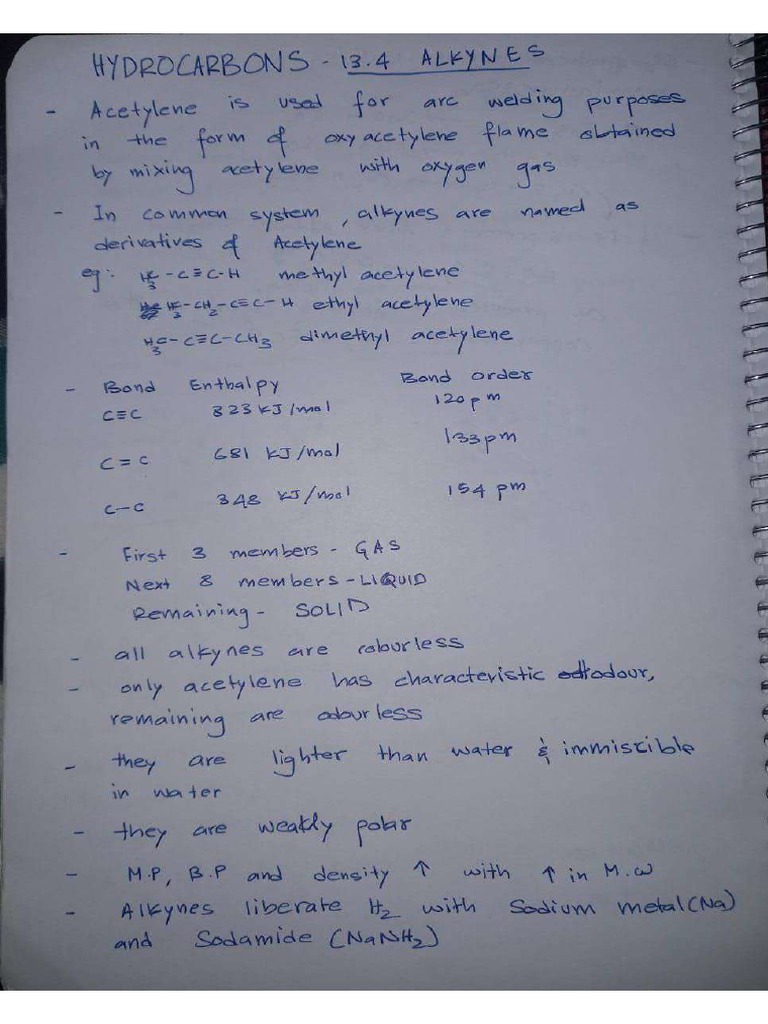 HYDROCARBONS - 13.4 ALKYNES
- Acetylene is used for arc welding purposes
in the form of oxyacetylene flame obtained
by mixing acetylene with oxygen gas
- In common system, alkynes are named as
derivatives of Acetylene
eg: H₃C-C≡C-H methyl acetylene
H₃C-CH₂-C≡C-H ethyl acetylene
H₃C-C≡C-CH₃ dimethyl acetylene
- Bond Enthalpy Bond order
C≡C 823 KJ/mol 120pm
C=C 681 KJ/mol 133pm
C-C 348 KJ/mol 154 pm
- First 3 members - GAS
Next 8 members - LIQUID
Remaining - SOLID
- all alkynes are colourless
- only acetylene has characteristic odour,
remaining are odourless
- they are lighter than water & immiscible
in water
- they are weakly polar
- M.P, B.P and density ↑ with ↑ in M.W
- Alkynes liberate H₂ with Sodium metal(Na)
and Sodamide (NaNH₂)